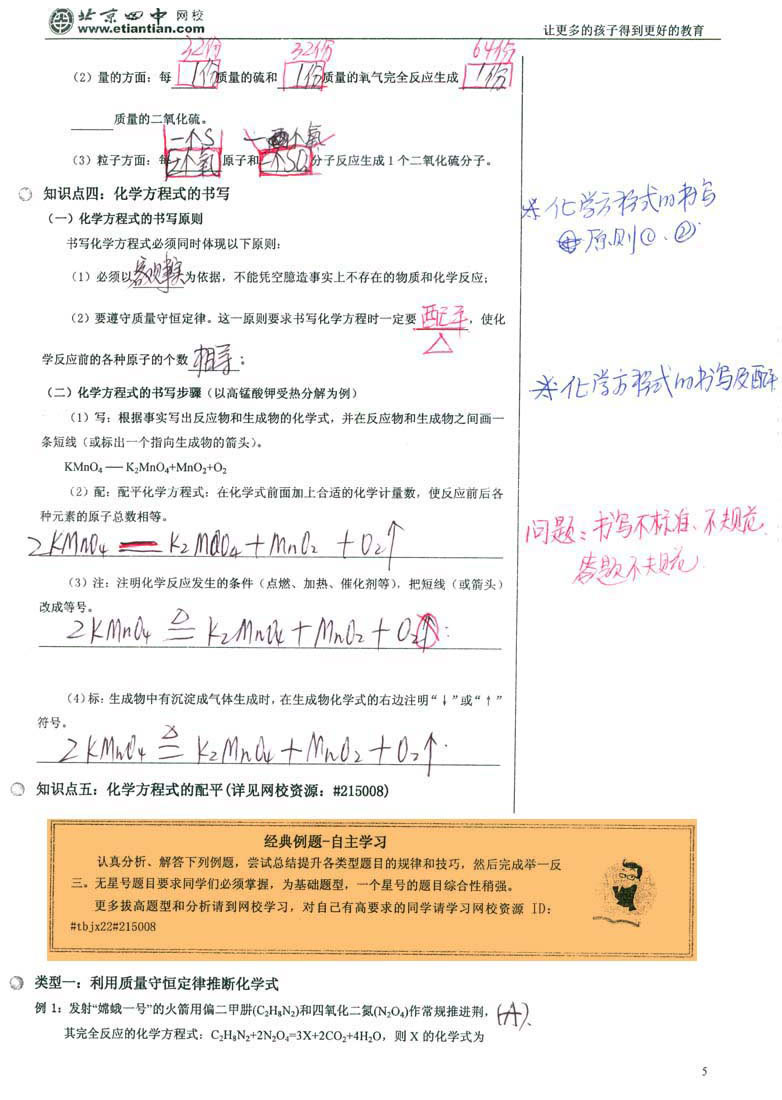 北京四中 网校
www.etiantian.com
让更多的孩子得到更好的教育
32份 32份 64份
（2）量的方面：每 1份 质量的硫和 1份 质量的氧气完全反应生成 1份
质量的二氧化硫。
一个S 一个氧
（3）粒子方面：每 原子和 一个SO2 分子反应生成 1 个二氧化硫分子。
知识点四：化学方程式的书写
（一）化学方程式的书写原则
书写化学方程式必须同时体现以下原则：
（1）必须以客观事实为依据，不能凭空臆造事实上不存在的物质和化学反应；
（2）要遵守质量守恒定律。这一原则要求书写化学方程时一定要 配平，使化
学反应前的各种原子的个数 相等；
（二）化学方程式的书写步骤（以高锰酸钾受热分解为例）
（1）写：根据事实写出反应物和生成物的化学式，并在反应物和生成物之间画一
条短线（或标出一个指向生成物的箭头）。
KMnO₄ — K₂MnO₄+MnO₂+O₂
（2）配：配平化学方程式：在化学式前面加上合适的化学计量数，使反应前后各
种元素的原子总数相等。
2KMnO₄ = K₂MnO₄+MnO₂+O₂↑
（3）注：注明化学反应发生的条件（点燃、加热、催化剂等），把短线（或箭头）
改成等号。
2KMnO₄ ≜ K₂MnO₄+MnO₂+O₂↑
（4）标：生成物中有沉淀成气体生成时，在生成物化学式的右边注明“↓”或“↑”
符号。
2KMnO₄ ≜ K₂MnO₄+MnO₂+O₂↑
知识点五：化学方程式的配平(详见网校资源：#215008)
※化学方程式的书写
原则①、②
※化学方程式的书写及配平
问题：书写不标准、不规范
答题不规范
经典例题-自主学习
认真分析、解答下列例题，尝试总结提升各类型题目的规律和技巧，然后完成举一反
三。无星号题目要求同学们必须掌握，为基础题型，一个星号的题目综合性稍强。
更多拔高题型和分析请到网校学习，对自己有高要求的同学请学习网校资源 ID:
#tbjx22#215008
类型一：利用质量守恒定律推断化学式
例 1：发射“嫦娥一号”的火箭用偏二甲肼(C₂H₈N₂)和四氧化二氮(N₂O₄)作常规推进剂，(A)、
其完全反应的化学方程式：C₂H₈N₂+2N₂O₄=3X+2CO₂+4H₂O，则 X 的化学式为
5